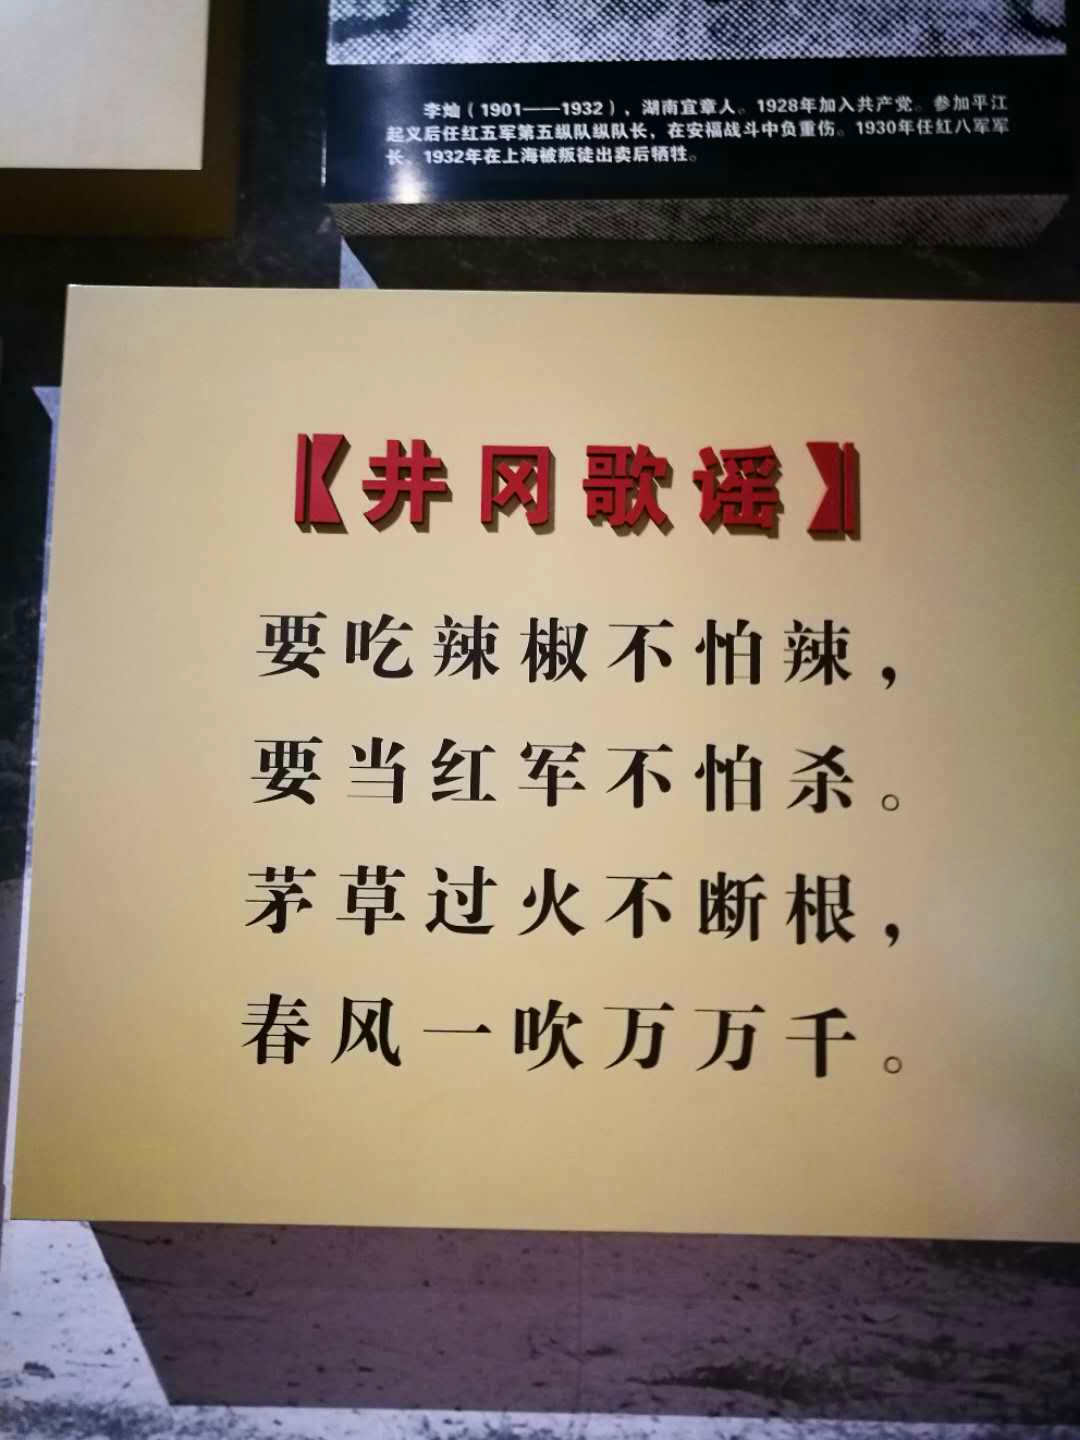 李灿（1901——1932），湖南宜章人。1928年加入共产党。参加平江
起义后任红五军第五纵队纵队长，在安福战斗中负重伤。1930年任红八军军
长，1932年在上海被叛徒出卖后牺牲。
【井冈歌谣】
要吃辣椒不怕辣，
要当红军不怕杀。
茅草过火不断根，
春风一吹万万千。